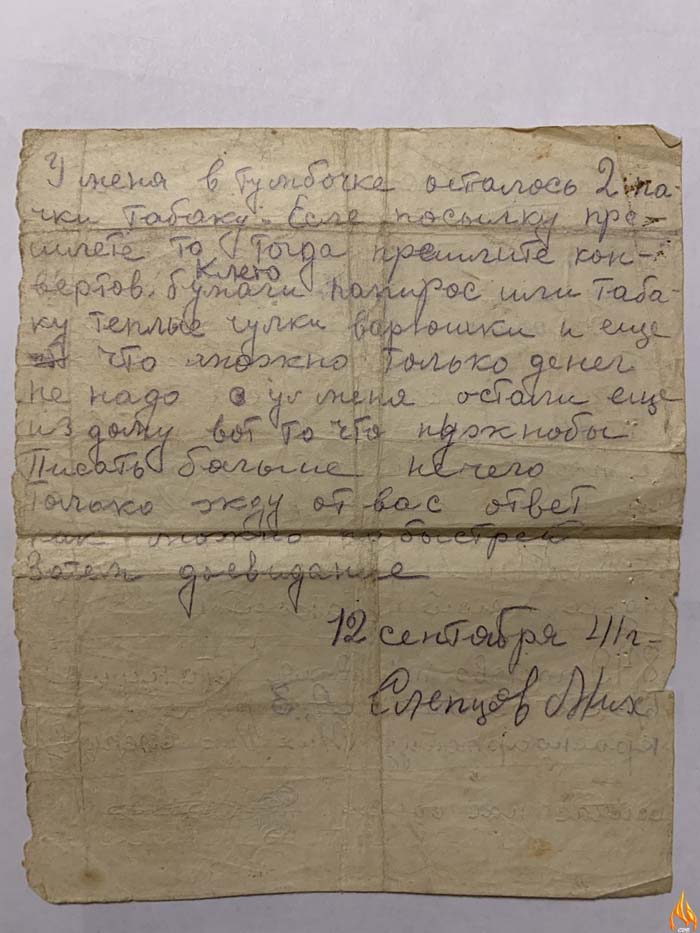 У меня в тумбочке осталось 2 па-
чки табаку. Есле посылку пре-
шлете то тогда прешлите кон-
вертов. бумаги Клето папирос или таба-
ку теплые чулки варюшки и еще
что можно только денег
не надо у меня остали еще
из дому вот то что нужнобы
Писать больше нечего
только жду от вас ответ
как можно побыстрей
Затем досвидание
12 сентября 41 г-
Слепцов Мих